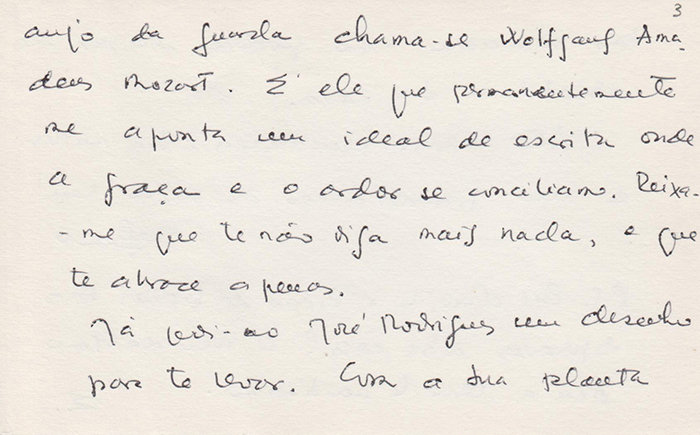 3
anjo da guarda chama-se Wolfgang Ama
deus Mozart. É ele que permanentemente
me aponta um ideal de escrita onde
a graça e o ardor se conciliam. Deixa-
-me que te não diga mais nada, e que
te abrace apenas.
Já pedi ao José Rodrigues um desenho
para te levar. Com a tua planta